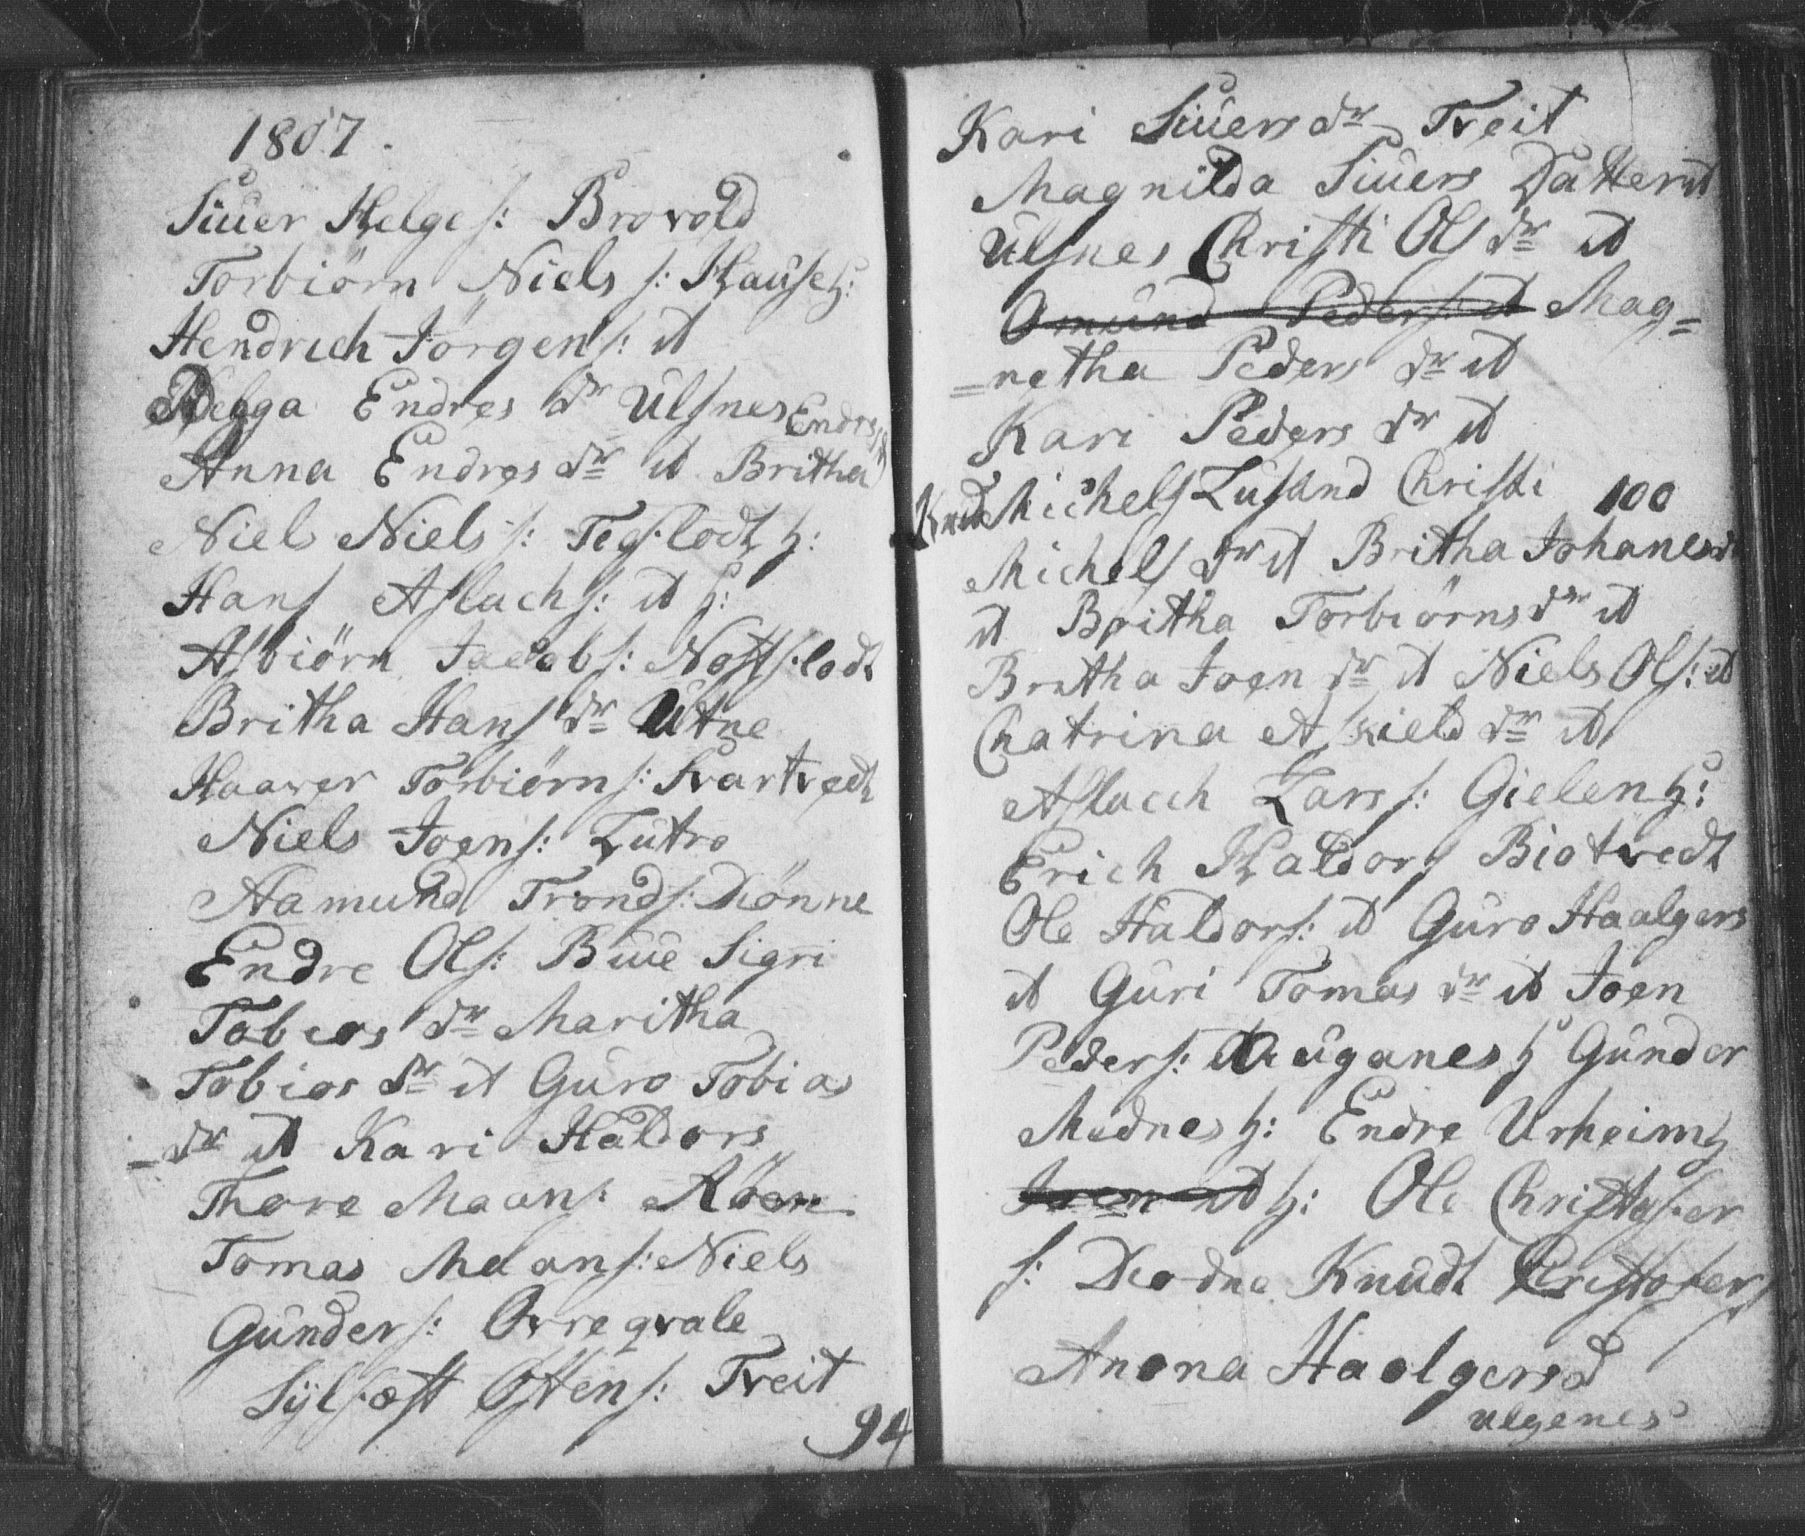 1807.
Siuer Helges: Brovold
Torbiörn Niels s: Hauseh:
Hendrich Jörgens: it
Helga Endres dr Ulsnes Endrs
Anna Endres dr it Britha
Niel Niels s: Tegslodt h:
Hans Aslachs: it h:
Asbiörn Jacobs: Nestslodt
Britha Hans dr Utne
Haaver Torbiörns: Svartvedt
Niels Joens: Lutro
Aamund Tronds: Diönne
Endre Ols: Buue Sigri
Tobias dr Maritha
Tobias dr it Guro Tobias
dr it Kari Haldors
Thore Maans:
Tomas Maans: Niels
Gunders: Orreqvale
Sylfæst Ostens: Treit
94
Kari Siuers dr Treit
Magnilda Siuers Datter it
Ulsnes Christi Ols dr it
Omund Peders: it Mag=
=netha Peders dr it
Kari Peders dr it
Knud Michels Lusand Christi 100
Michels dr it Britha Johanes dr
it Britha Torbiörns dr it
Britha Joen dr it Niels Ols: it
Chatrina Askield dr it
Aslach Lars s: Gielen h:
Erich Haldors Biotvedt
Ole Haldors: it Guro Haalgers
it Guri Tomas dr it Joen
Peders: Hauganes h Gunder
Mednes h: Endre Urheim h
Joen it h: Ole Christofer
s: Diodne Knudt Christofers
Anna Haolgersd
ulgenes